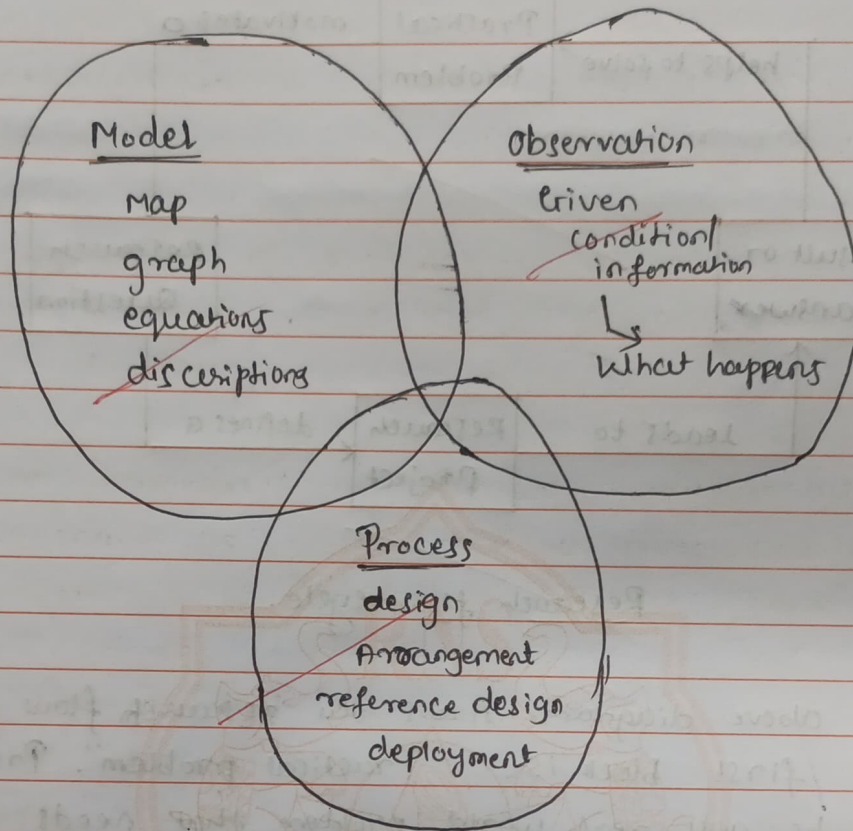 Model
Map
graph
equations
disceriptions
Observation
Given
condition/
information
What happens
Process
design
Arrangement
reference design
deployment